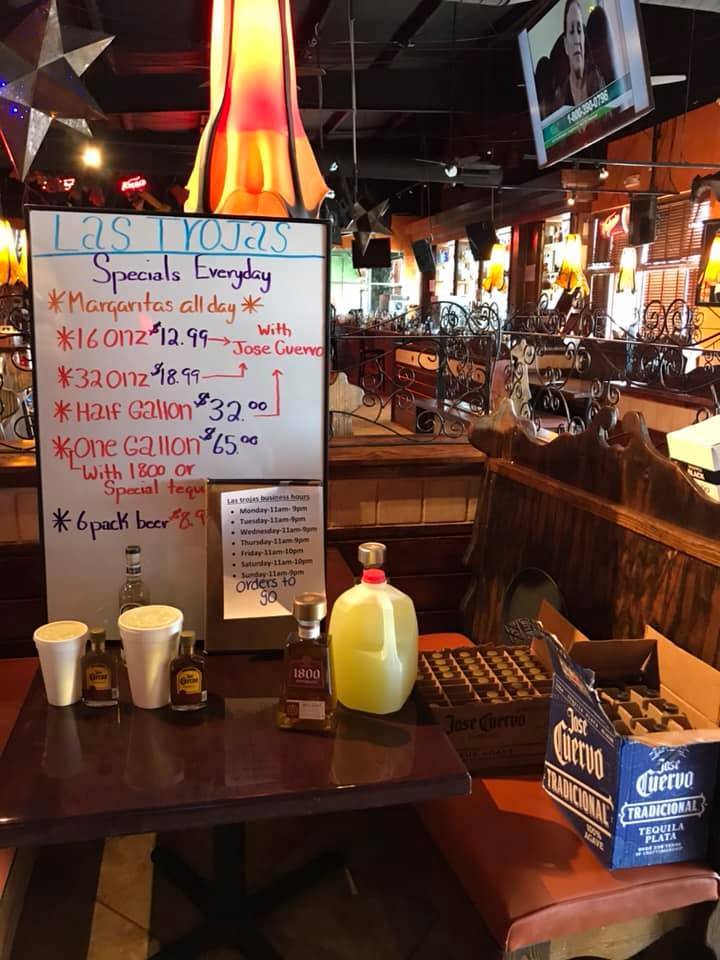 Las Trojas
Specials Everyday
*Margaritas all day*
*16 onz $12.99→ With Jose Cuervo
*32 onz $18.99
*Half Gallon $32.00
*One Gallon $65.00
With 1800 or
Special tequ
*6 pack beer $8.9
Las trojas business hours
• Monday-11am- 9pm
• Tuesday-11am-9pm
• Wednesday-11am-9pm
• Thursday-11am-9pm
• Friday-11am-10pm
• Saturday-11am-10pm
• Sunday-11am-9pm
orders to
go
1-800-390-0796
Jose Cuervo
Jose Cuervo
1800
Jose Cuervo
Jose
Cuervo
TRADICIONAL
100%
AGAVE
Jose
Cuervo
TRADICIONAL
TEQUILA
PLATA
BLACK